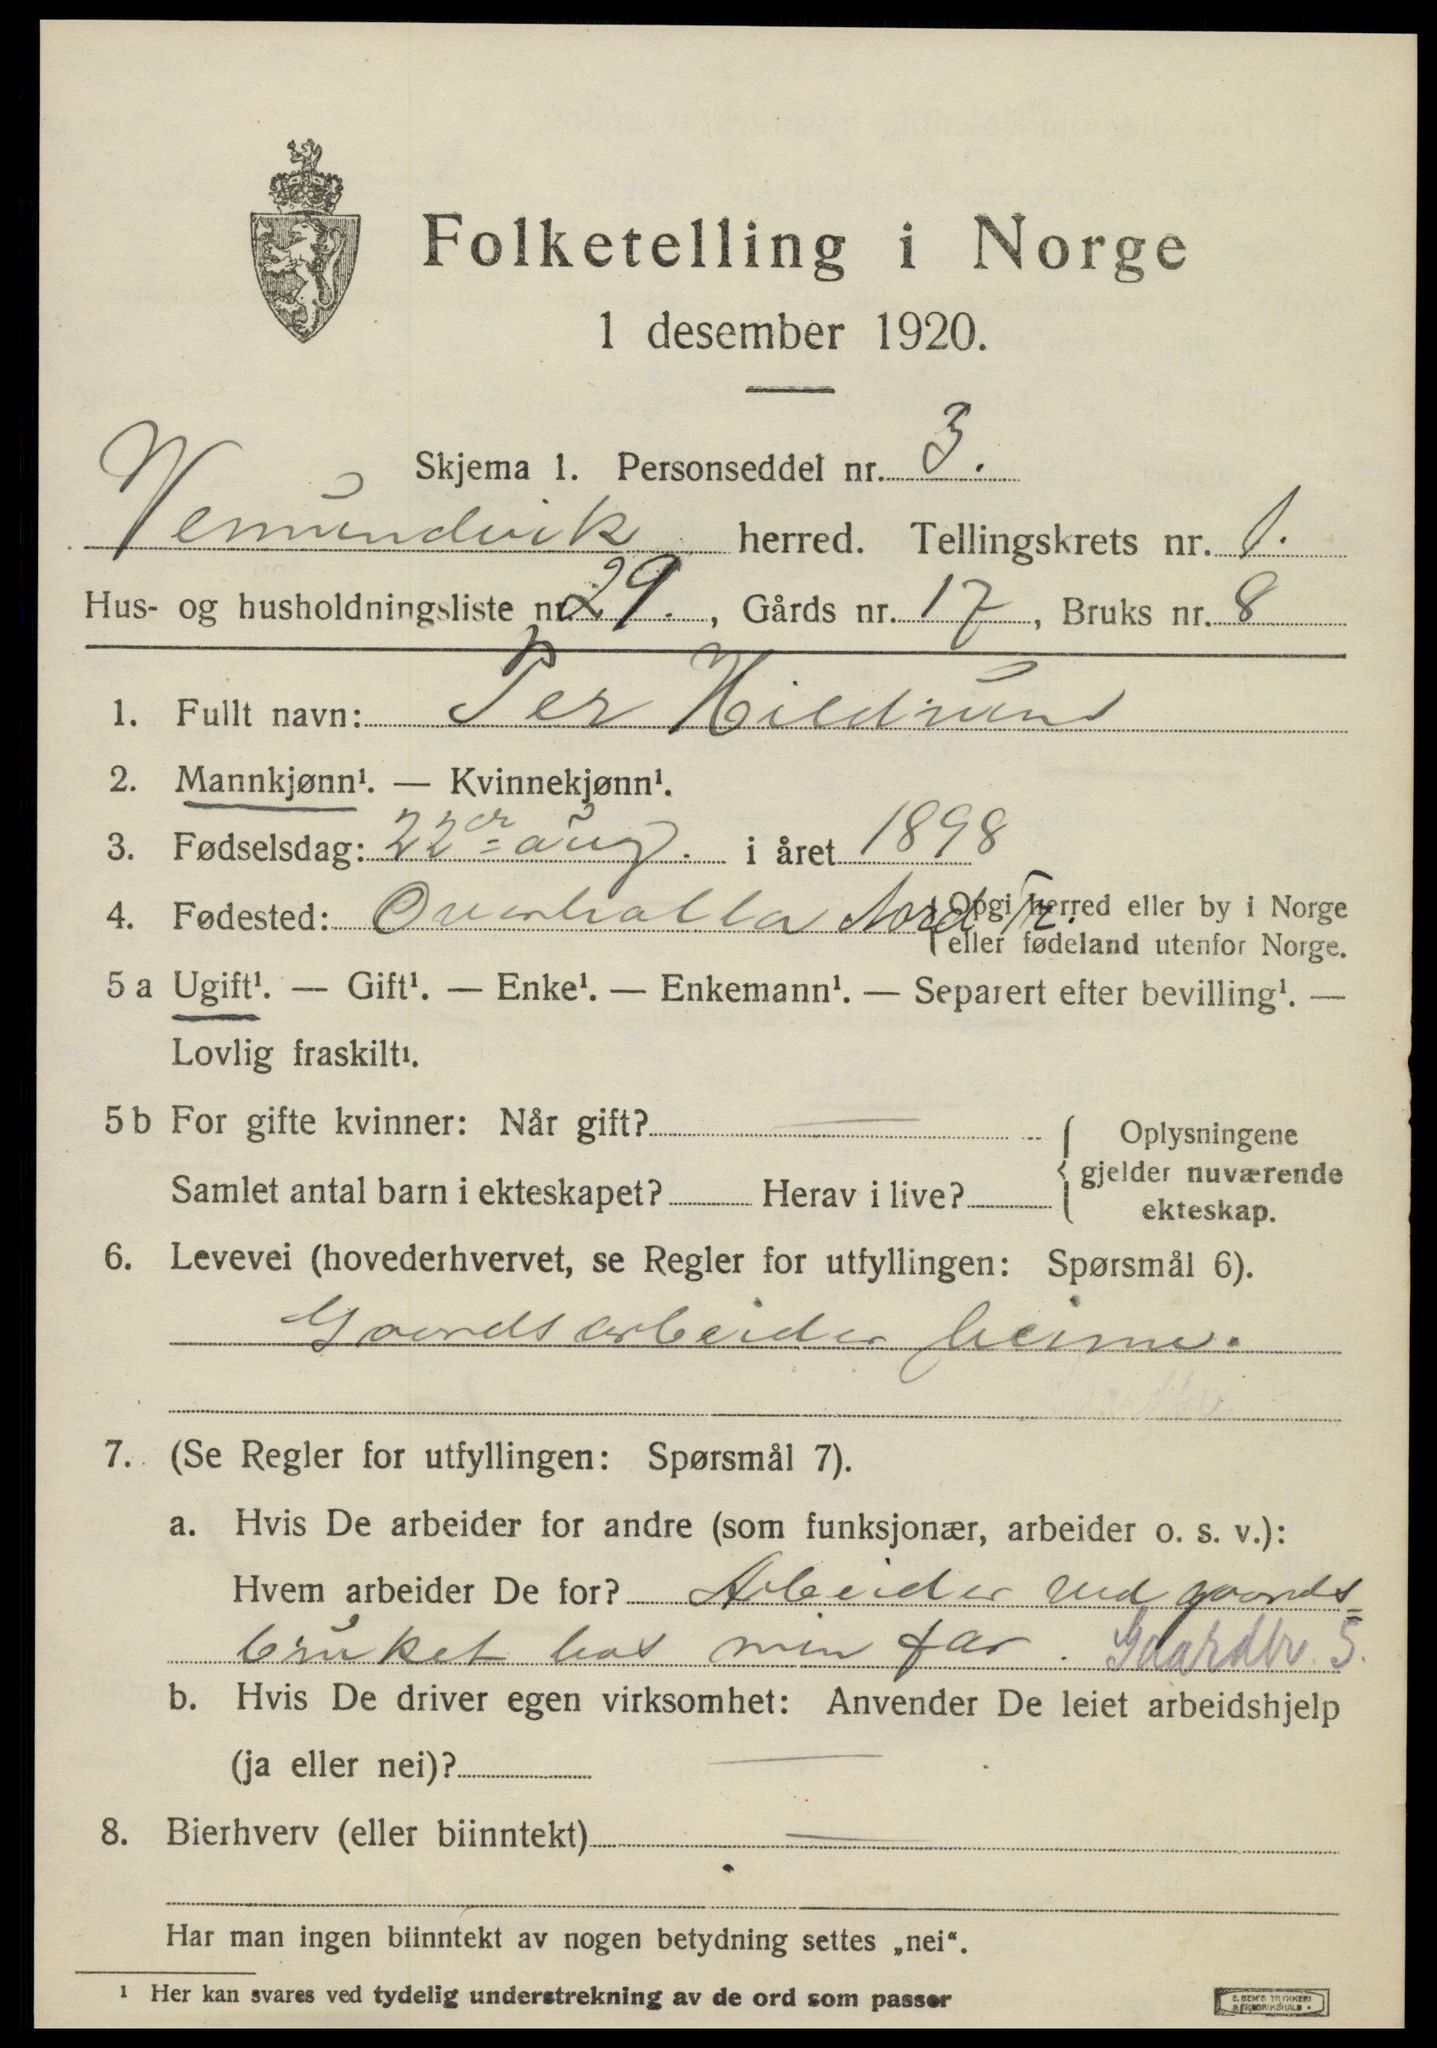 Folketelling i Norge
1 desember 1920.
Skjema 1. Personseddel nr. 3.
Vemundvik herred. Tellingskrets nr. 1.
Hus- og husholdningsliste nr. 29. , Gårds nr. 17 , Bruks nr. 8
1. Fullt navn: Per Hildrum
2. Mannkjønn¹. — Kvinnekjønn¹.
3. Fødselsdag: 22de aug. i året 1898
4. Fødested: Overhalla Nord Tr. { Opgi herred eller by i Norge
eller fødeland utenfor Norge.
5 a Ugift¹. — Gift¹. — Enke¹. — Enkemann¹. — Separert efter bevilling¹. —
Lovlig fraskilt¹.
5 b For gifte kvinner: Når gift? —
Samlet antal barn i ekteskapet? Herav i live?
{ Oplysningene
gjelder nuværende
ekteskap.
6. Levevei (hovederhvervet, se Regler for utfyllingen: Spørsmål 6).
Gaardsarbeider heime.
7. (Se Regler for utfyllingen: Spørsmål 7).
a. Hvis De arbeider for andre (som funksjonær, arbeider o. s. v.):
Hvem arbeider De for? Arbeider ved gaards=
bruket hos min far. Gaardbr. S.
b. Hvis De driver egen virksomhet: Anvender De leiet arbeidshjelp
(ja eller nei)? —
8. Bierhverv (eller biinntekt) —
Har man ingen biinntekt av nogen betydning settes „nei“.
¹ Her kan svares ved tydelig understrekning av de ord som passer
E. SEM'S TRYKKERI
FREDRIKSHALD